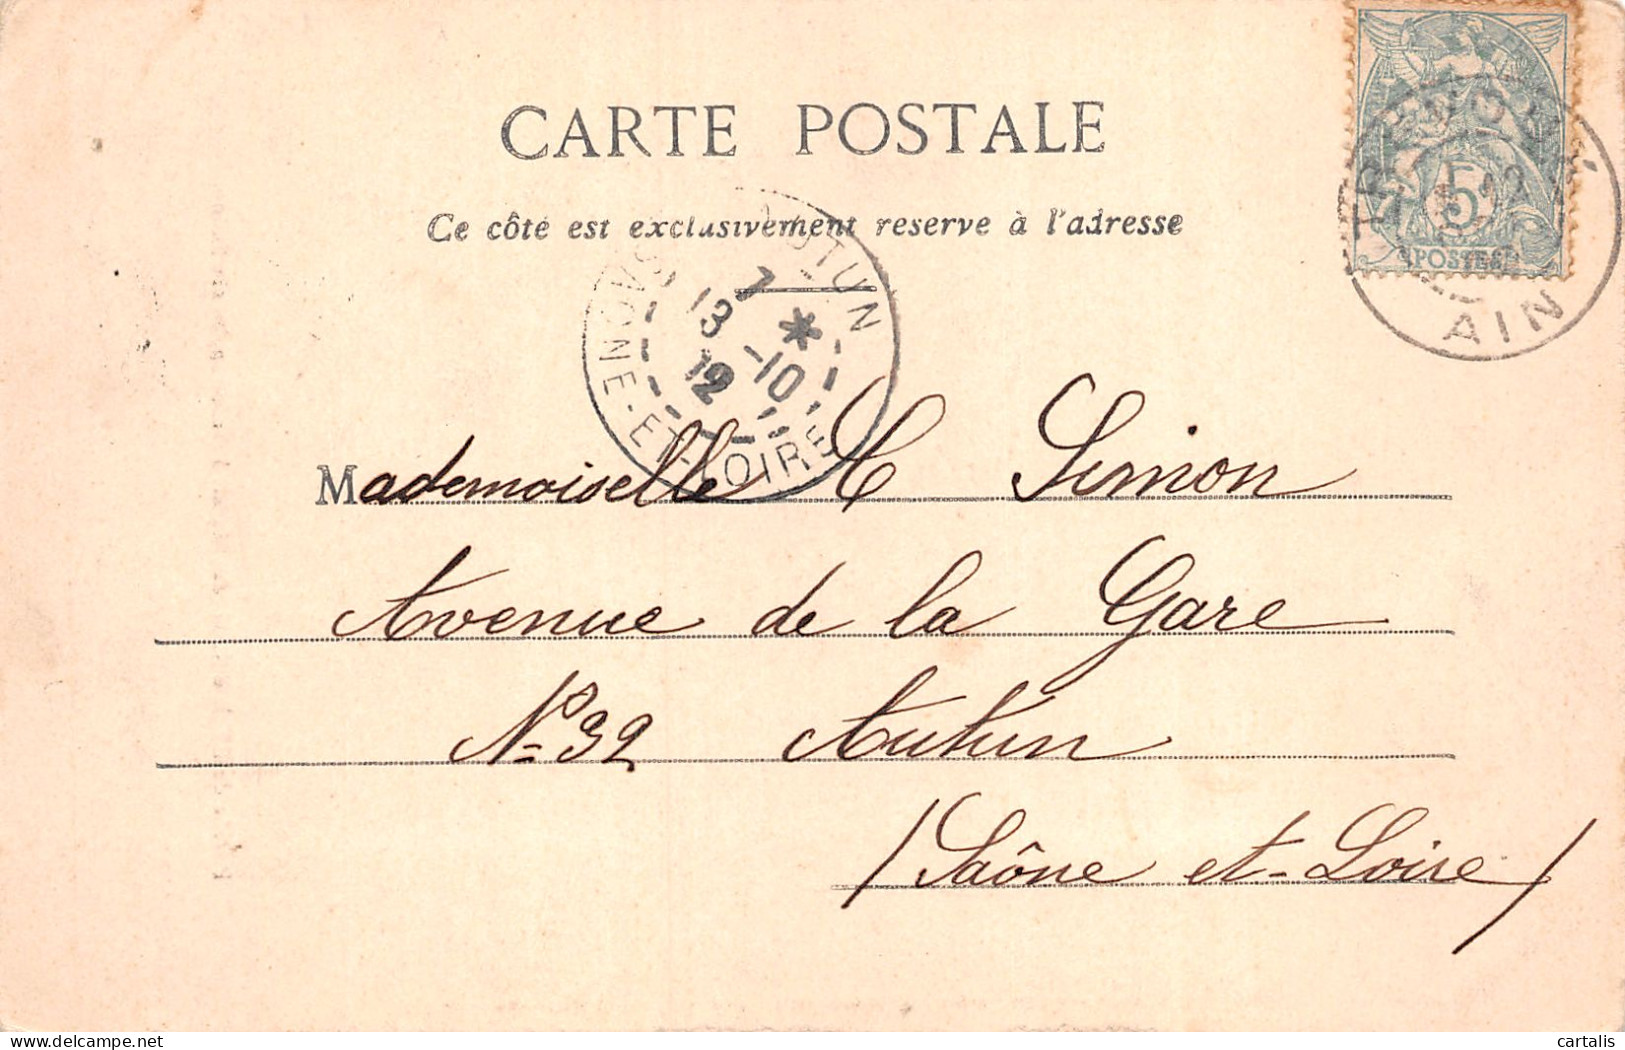 CARTE POSTALE
Ce côté est exclusivement reserve à l'adresse
5
POSTES
AIN
AUTUN
7 *
13 -10
12
SAONE-ET-LOIRE
Mademoiselle C Simon
Avenue de la Gare
No 32 Autun
(Saône et-Loire)
delcampe.net
cartalis